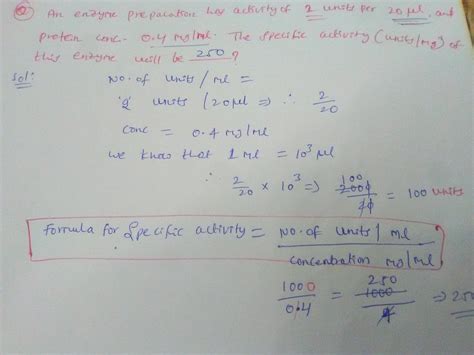 Q) An enzyme preparation has activity of 2 units per 20 µl, and
protein conc. 0.4 mg/ml. The specific activity (units/mg) of
this enzyme will be 250?
Sol:
No. of units/ml =
'2' units /20µl => ∴ 2/20
Conc = 0.4 mg/ml
we know that 1 ml = 10³ µl
∴ 2/20 × 10³ => = 100 units
Formula for Specific activity = No. of units / ml
Concentration mg/ml
100 / 0.4 = 250 1000 / 4 => 250